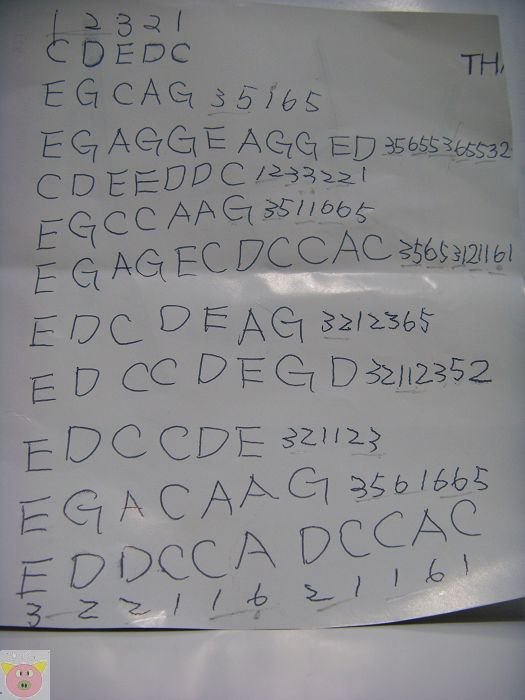 1 2 3 2 1
C D E D C
TH
E G C A G 3 5 1 6 5
E G A G G E A G G E D 35655365532
C D E E D D C 1233221
E G C C A A G 3511665
E G A G E C D C C A C 35653121161
E D C D E A G 3212365
E D C C D E G D 32112352
E D C C D E 321123
E G A C A A G 3561665
E D D C C A D C C A C
3 2 2 1 1 6 2 1 1 6 1